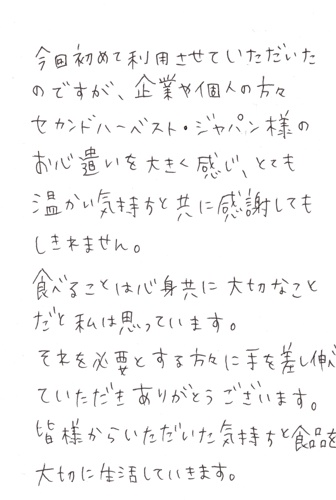 今回初めて利用させていただいた
のですが、企業や個人の方々
セカンドハーベスト・ジャパン様の
お心遣いを大きく感じ、とても
温かい気持ちと共に感謝しても
しきれません。
食べることは心身共に大切なこと
だと私は思っています。
それを必要とする方々に手を差し伸べ
ていただきありがとうございます。
皆様からいただいた気持ちと食品を
大切に生活していきます。